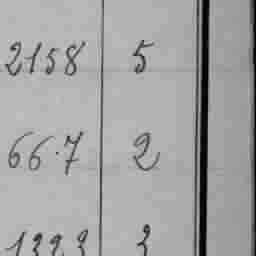 2158 5
66.7 2
1323 3